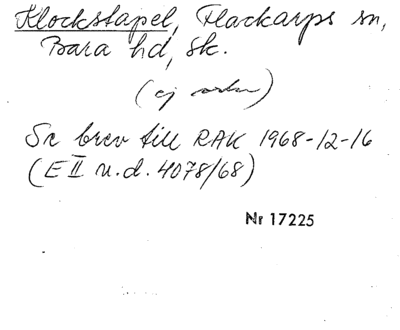 Klockstapel, Flackarps sn,
Bara hd, Sk.
(ej
Se brev till RAK 1968-12-16
(E II u.d. 4078/68)
Nr 17225